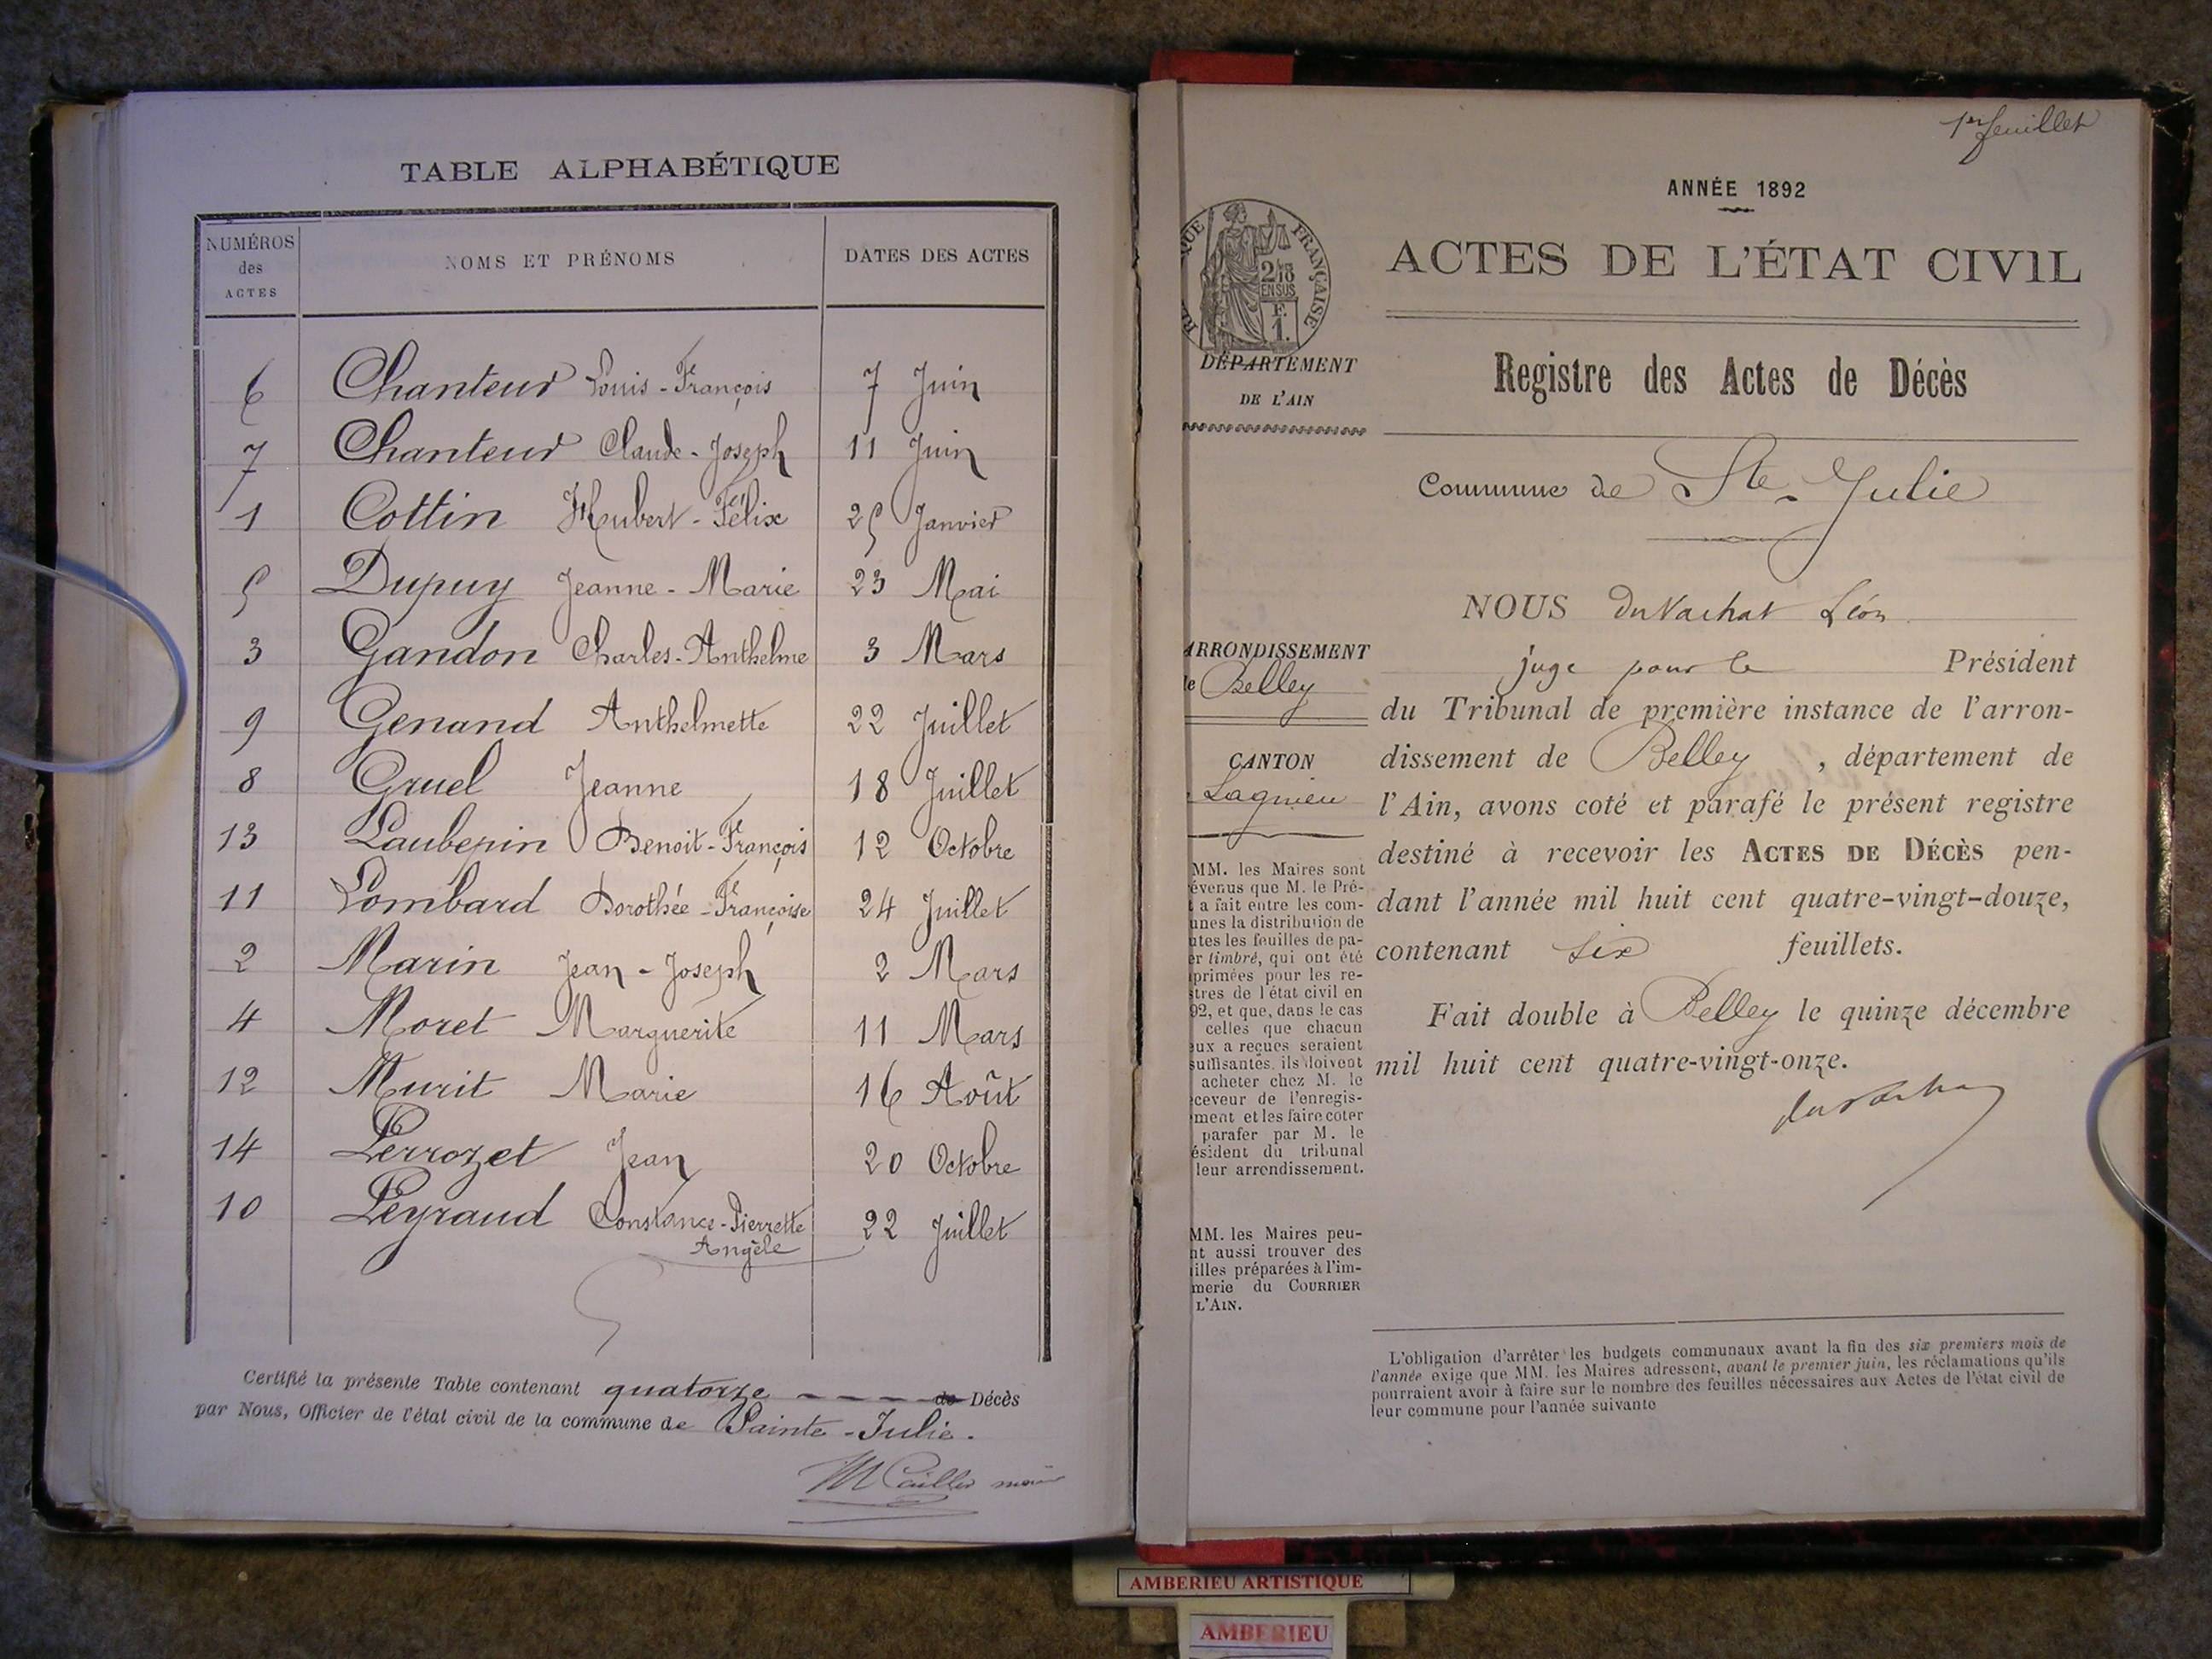 TABLE ALPHABÉTIQUE
NUMÉROS des ACTES NOMS ET PRÉNOMS DATES DES ACTES
6 Chanteur Louis-François 7 Juin
7 Chanteur Claude-Joseph 11 Juin
1 Cottin Hubert-Félix 25 Janvier
5 Dupuy Jeanne-Marie 23 Mai
3 Gandon Charles-Anthelme 3 Mars
9 Genand Anthelmette 22 Juillet
8 Gruel Jeanne 18 Juillet
13 Laubepin Benoit-François 12 Octobre
11 Lombard Dorothée-Françoise 24 Juillet
2 Marin Jean-Joseph 2 Mars
4 Moret Marguerite 11 Mars
12 Murit Marie 16 Août
14 Perrozet Jean 20 Octobre
10 Peyraud Constance-Pierrette 22 Juillet
Angèle
Certifié la présente Table contenant quatorze de Décès
par Nous, Officier de l'état civil de la commune de Sainte-Julie.
M Cailler maire
1er feuillet
ANNÉE 1892
ACTES DE L'ÉTAT CIVIL
Registre des Actes de Décès
Commune de Ste-Julie
RÉPUBLIQUE FRANÇAISE
2/10
EN SUS
F.
1.
DÉPARTEMENT
DE L'AIN
ARRONDISSEMENT
de Belley
CANTON
Lagnieu
MM. les Maires sont
évenus que M. le Pré-
t a fait entre les com-
unes la distribution de
utes les feuilles de pa-
er timbré, qui ont été
primées pour les re-
stres de l'état civil en
92, et que, dans le cas
celles que chacun
eux a reçues seraient
suffisantes, ils doivent
acheter chez M. le
ceveur de l'enregis-
ment et les faire coter
parafer par M. le
ésident du tribunal
leur arrondissement.
MM. les Maires peu-
nt aussi trouver des
illes préparées à l'im-
merie du COURRIER
L'AIN.
NOUS du Vachat Léon
juge pour le Président
du Tribunal de première instance de l'arron-
dissement de Belley, département de
l'Ain, avons coté et parafé le présent registre
destiné à recevoir les ACTES DE DÉCÈS pen-
dant l'année mil huit cent quatre-vingt-douze,
contenant six feuillets.
Fait double à Belley le quinze décembre
mil huit cent quatre-vingt-onze.
L'obligation d'arrêter les budgets communaux avant la fin des six premiers mois de
l'année exige que MM. les Maires adressent, avant le premier juin, les réclamations qu'ils
pourraient avoir à faire sur le nombre des feuilles nécessaires aux Actes de l'état civil de
leur commune pour l'année suivante
AMBERIEU ARTISTIQUE
AMBERIEU